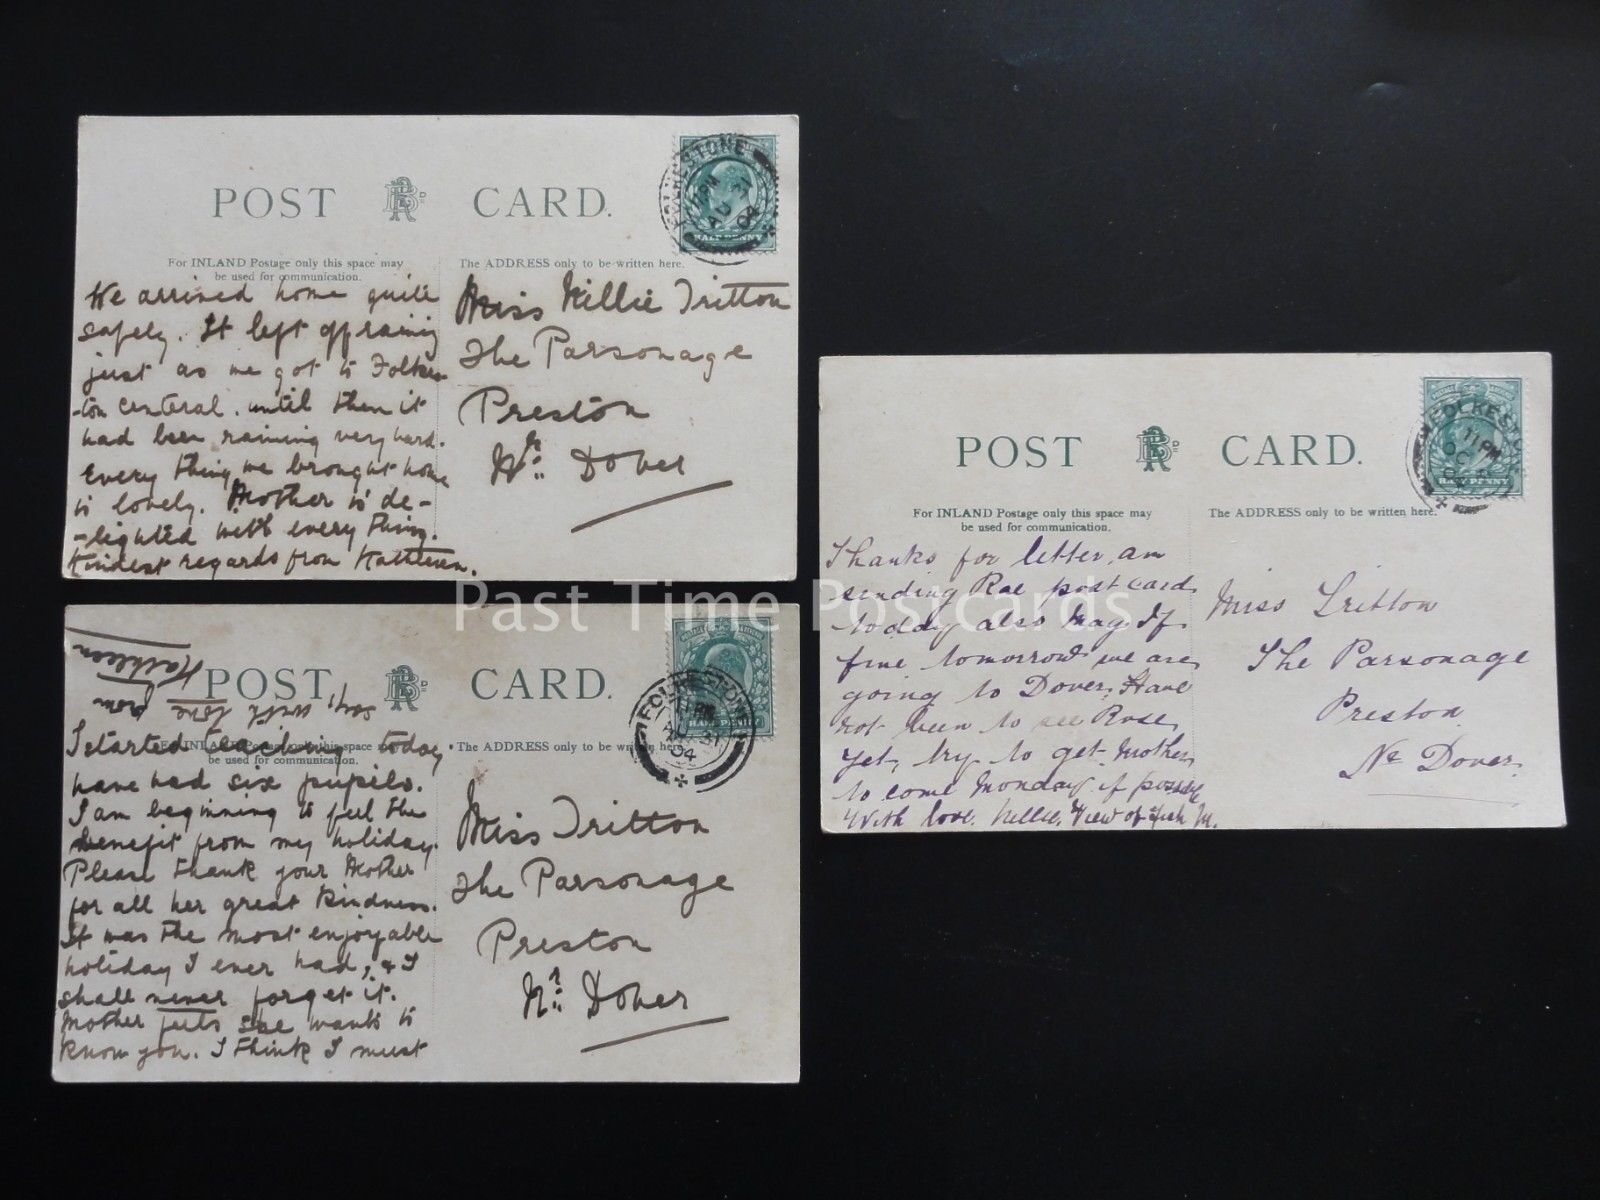 POST CARD.
FOLKESTONE
11 PM
AU 31
04
HALF PENNY
For INLAND Postage only this space may
be used for communication.
The ADDRESS only to be written here.
We arrived home quite
safely. It left off raining
just as we got to Folkes-
-ton central. until then it
had been raining very hard.
Every thing we brought home
is lovely. Mother is de-
-lighted with every thing.
Kindest regards from Kathleen.
Miss Nillie Tritton
The Parsonage
Preston
Nr. Dover
POST CARD.
FOLKESTONE
11 PM
31
04
HALF PENNY
For INLAND Postage only this space may
be used for communication.
The ADDRESS only to be written here.
I started teaching today.
have had six pupils.
I am beginning to feel the
benefit from my holiday.
Please thank your Mother
for all her great kindness.
It was the most enjoyable
holiday I ever had, & I
shall never forget it.
Mother feels she wants to
know you. I think I must
say, with love from
Kathleen
Miss Tritton
The Parsonage
Preston
Nr. Dover
POST CARD.
FOLKESTONE
11 PM
OC
HALF PENNY
For INLAND Postage only this space may
be used for communication.
The ADDRESS only to be written here.
Thanks for letter, am
sending Rae postcard
today also May. If
fine tomorrow we are
going to Dover. Have
not been to see Rose
yet, try to get Mother
to come Monday if possible
With love. Nellie. View of Fish M.
Miss Tritton
The Parsonage
Preston
Nr Dover.
Past Time Postcards